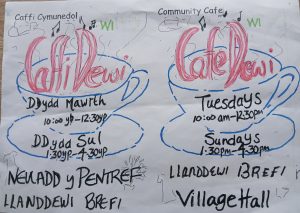 Caffi Cymunedol
WI
Caffi Dewi
DDydd Mawrth
10:00yp-12:30yp
DDydd Sul
1:30yp-4:30yp
Neuadd y Pentref
Llanddewi Brefi
Community Cafe
WI
Cafe Dewi
Tuesdays
10:00am-12:30pm
Sundays
1:30pm-4:30pm
Llanddewi Brefi
Village Hall